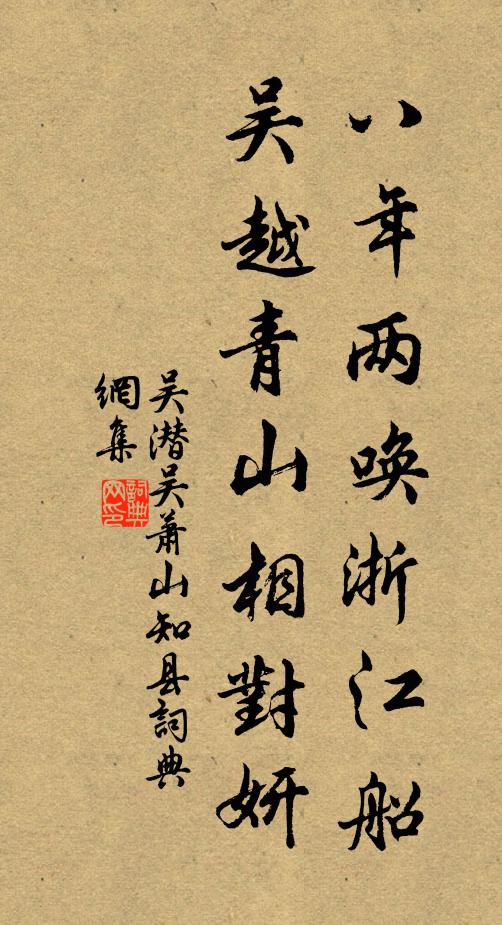 八年两唤浙江船
吴越青山相對妍
吴潜吴萧山知县詞典
網集
詞典
网印